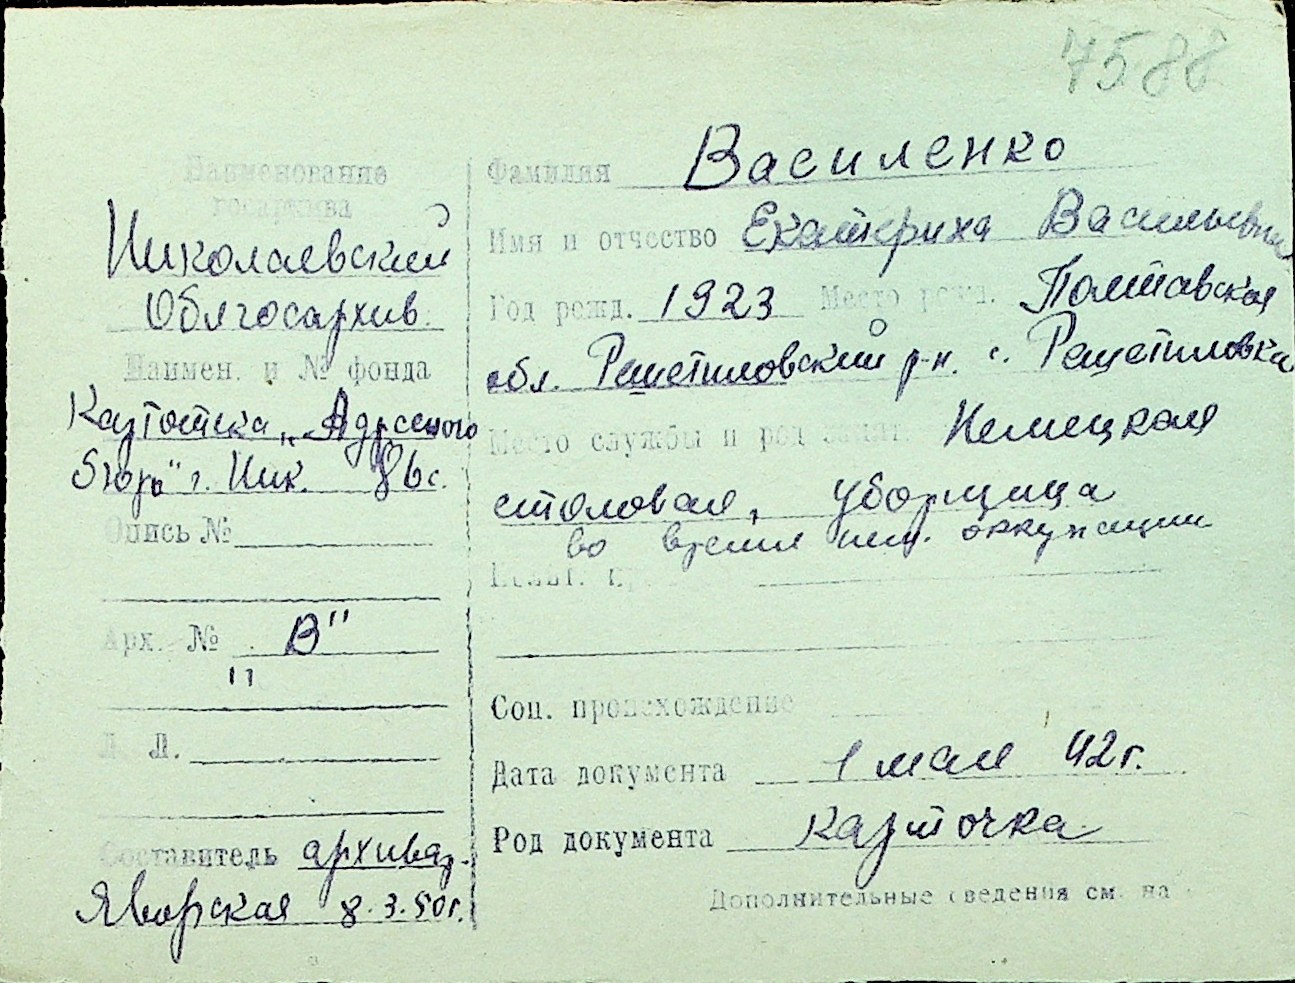 7588
Наименование
госархива
Николаевский
Облгосархив
Наимен. и № фонда
Картотека „Адресного
бюро" г. Ник.
Опись №
Арх. № „В"
Л. Л.
Составитель архивар.
Яворская 8.3.50г.
Фамилия Василенко
Имя и отчество Екатерина Васильевна
Год рожд. 1923 Место рожд. Полтавская
обл. Решетиловский р-н. с. Решетиловка
Место службы и род занят. Немецкая
столовая, уборщица
во время нем. оккупации
Соц. происхождение
Дата документа 1 мая 42г.
Род документа карточка
Дополнительные сведения см. на